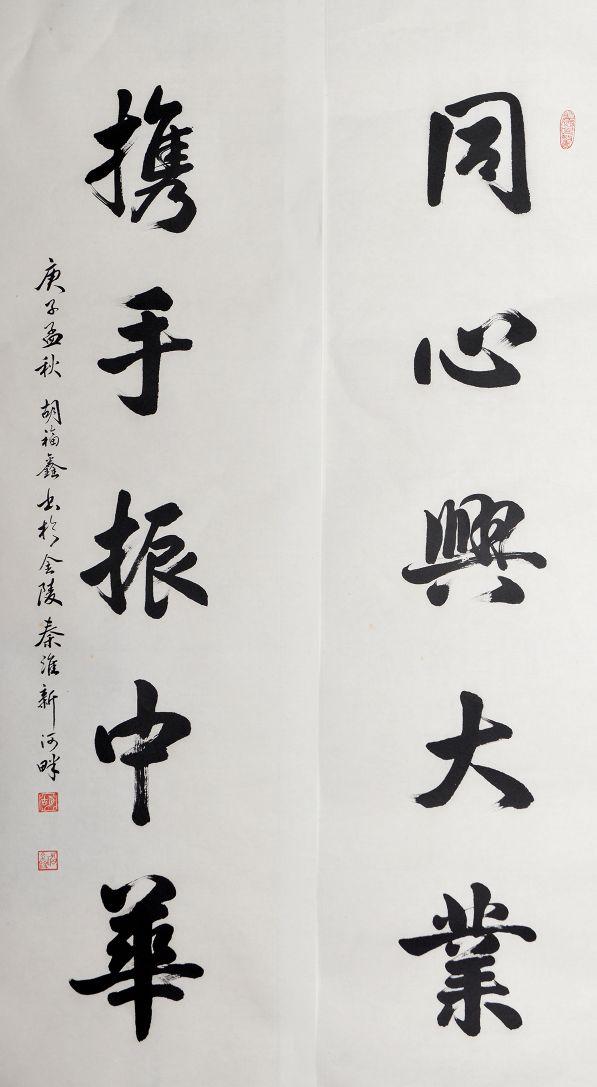 同心興大業
攜手振中華
庚子孟秋 胡福鑫书於金陵秦淮新河畔